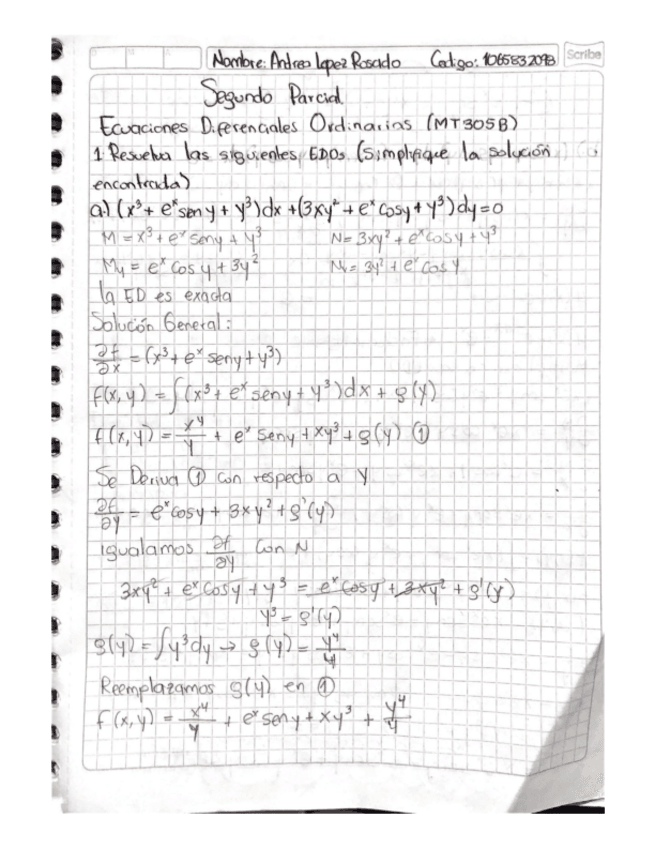 Nombre: Andrea Lopez Rosado Codigo: 1065832093 Scribe
Segundo Parcial
Ecuaciones Diferenciales Ordinarias (MT305B)
1. Resuelva las siguientes EDOs (Simplifique la solución
encontrada)
a.) (x³ + eˣ sen y + y³)dx + (3xy² + eˣ cos y + y³)dy = 0
M = x³ + eˣ sen y + y³ N = 3xy² + eˣ cos y + y³
My = eˣ cos y + 3y² Nx = 3y² + eˣ cos y
la ED es exacta
Solución General:
∂f/∂x = (x³ + eˣ sen y + y³)
f(x, y) = ∫(x³ + eˣ sen y + y³)dx + g(y)
f(x, y) = x⁴/4 + eˣ sen y + xy³ + g(y) ①
Se Deriva ① con respecto a y
∂f/∂y = eˣ cos y + 3xy² + g'(y)
igualamos ∂f/∂y con N
3xy² + eˣ cos y + y³ = eˣ cos y + 3xy² + g'(y)
y³ = g'(y)
g(y) = ∫y³dy → g(y) = y⁴/4
Reemplazamos g(y) en ①
f(x, y) = x⁴/4 + eˣ sen y + xy³ + y⁴/4